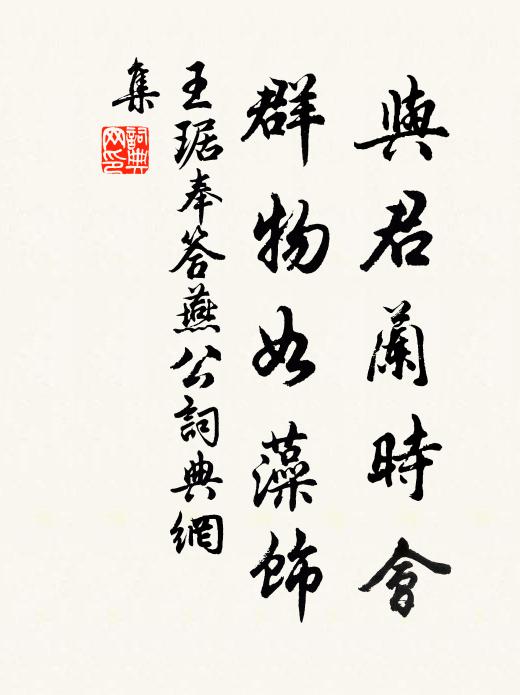 與君蘭時會
群物如藻飾
王琚奉答燕公詞典網
集
詞典
网印